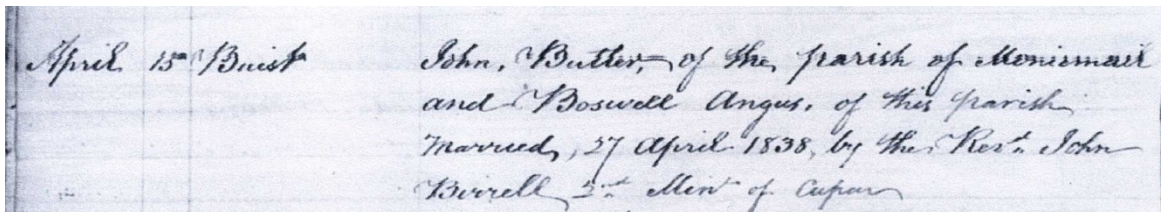 April 15th Buist John, Butler, of the parish of Monimail
and Boswell Angus, of this parish
Married, 27 April 1838, by the Revd. John
Birrell 2nd Minr of Cupar